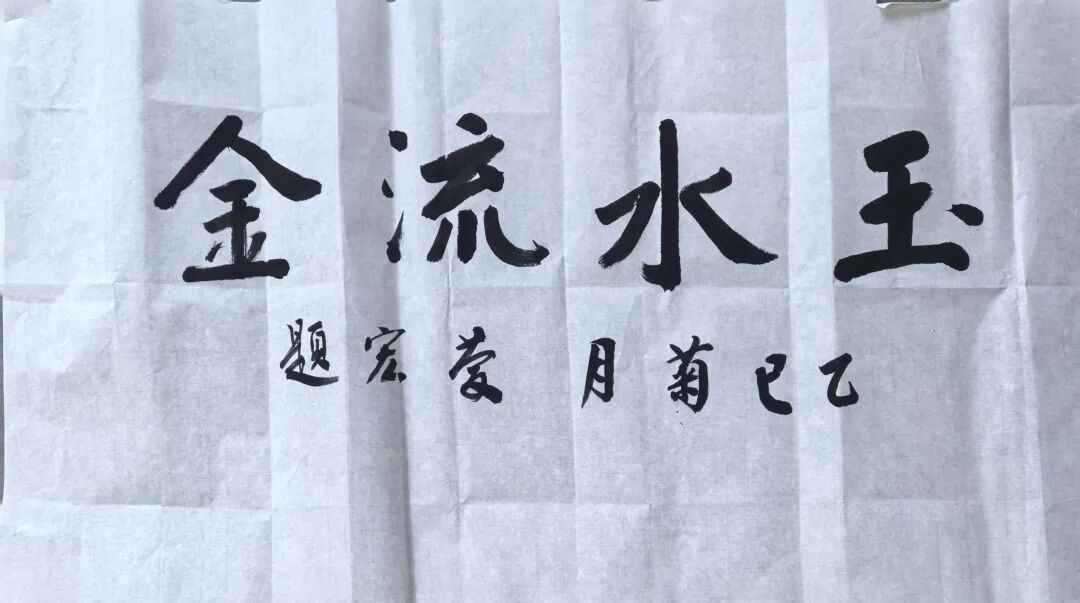 玉水流金
乙巳菊月 宏题